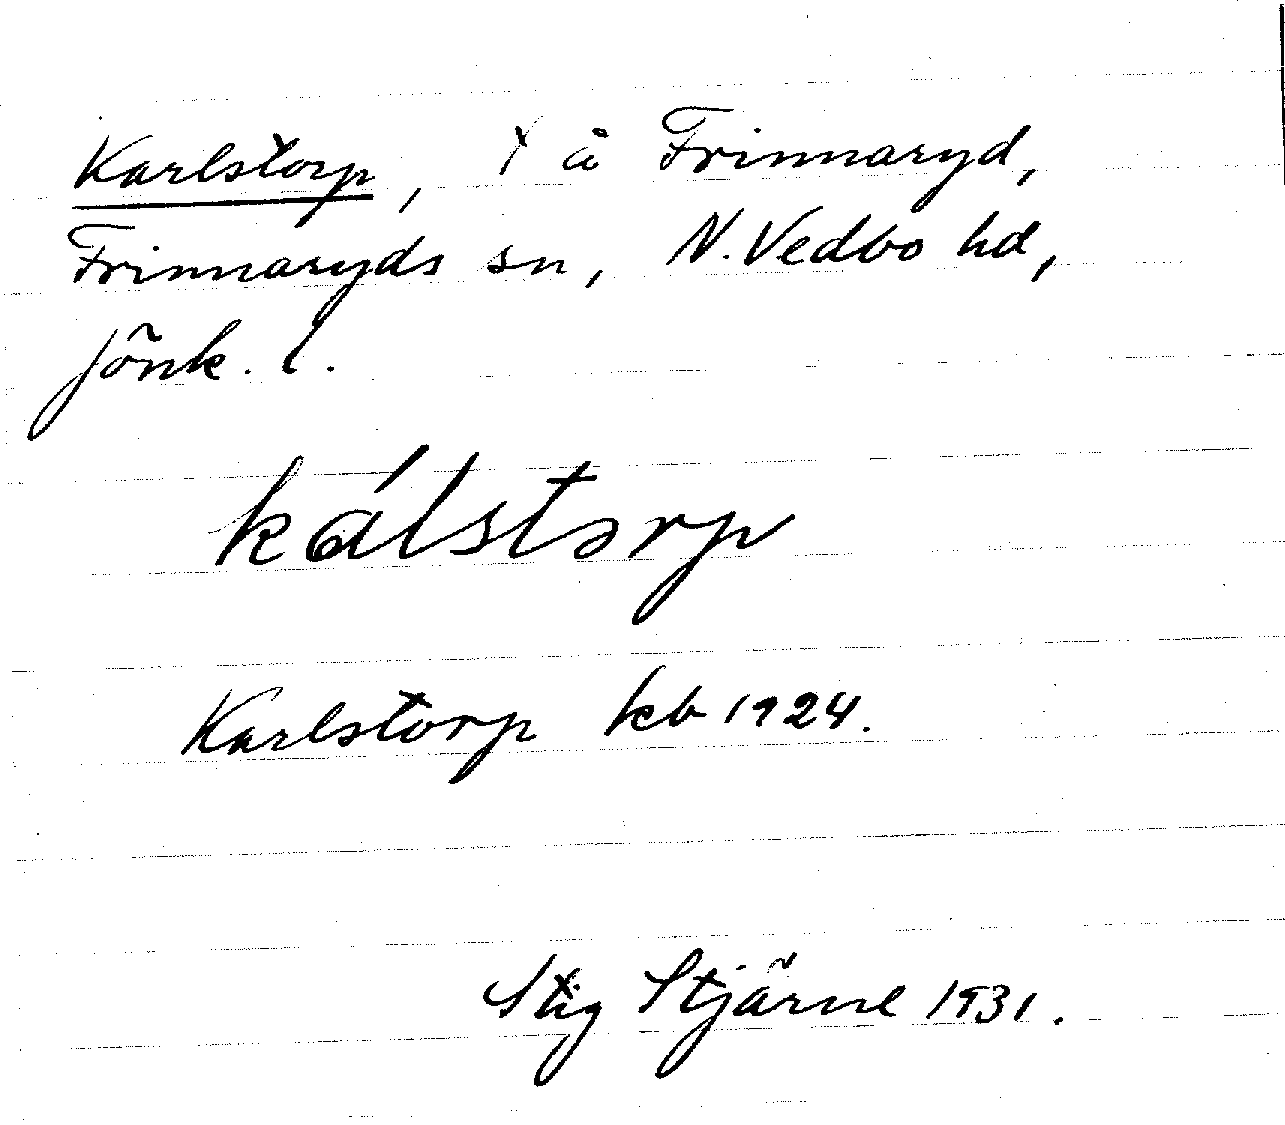 Karlstorp, † å Frinnaryd,
Frinnaryds sn, N. Vedbo hd,
Jönk. l.
kálstorp
Karlstorp kb 1924.
Stig Stjärne 1931.